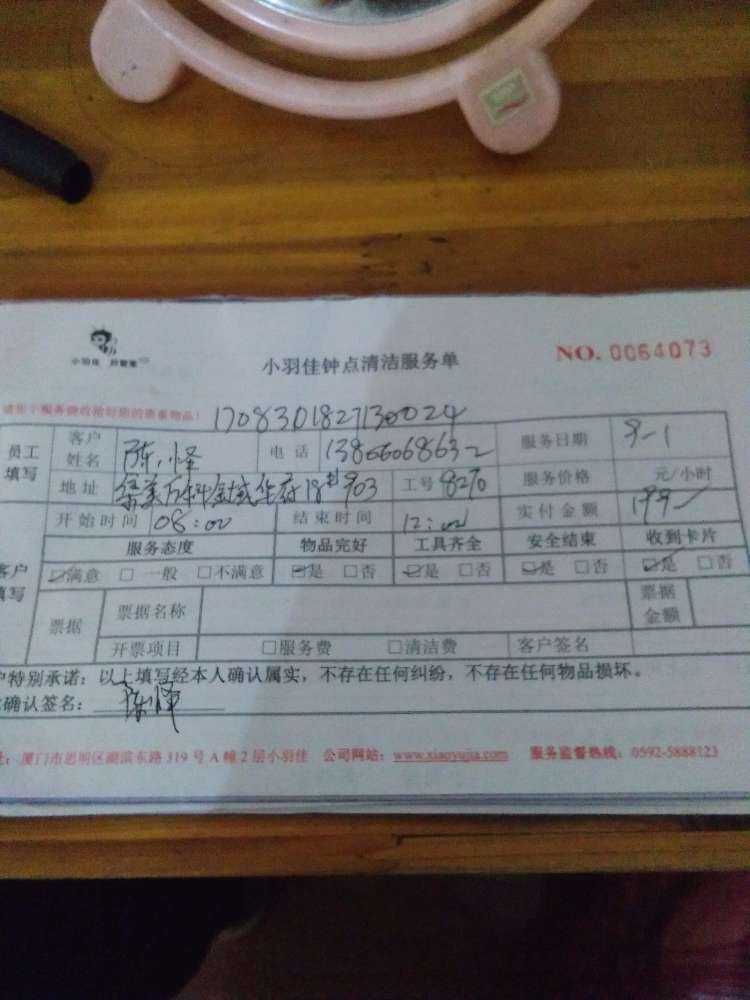 小羽佳 好管家
小羽佳钟点清洁服务单
NO. 0064073
请在服务前收拾好您的贵重物品!
1708301827130024
员工填写 客户姓名 陈 电话 服务日期 9-1
地址 集美万科金域华府18#903 工号 8270 服务价格 元/小时
开始时间 08:00 结束时间 12:00 实付金额 199
客户填写 服务态度 物品完好 工具齐全 安全结束 收到卡片
☑满意 □一般 □不满意 ☑是 □否 ☑是 □否 ☑是 □否 ☑是 □否
票据 票据名称 票据金额
开票项目 □服务费 □清洁费 客户签名
户特别承诺:以上填写经本人确认属实,不存在任何纠纷,不存在任何物品损坏。
确认签名: 陈
址:厦门市思明区湖滨东路319号A幢2层小羽佳 公司网站:www.xiaoyujia.com 服务监督热线:0592-5888123